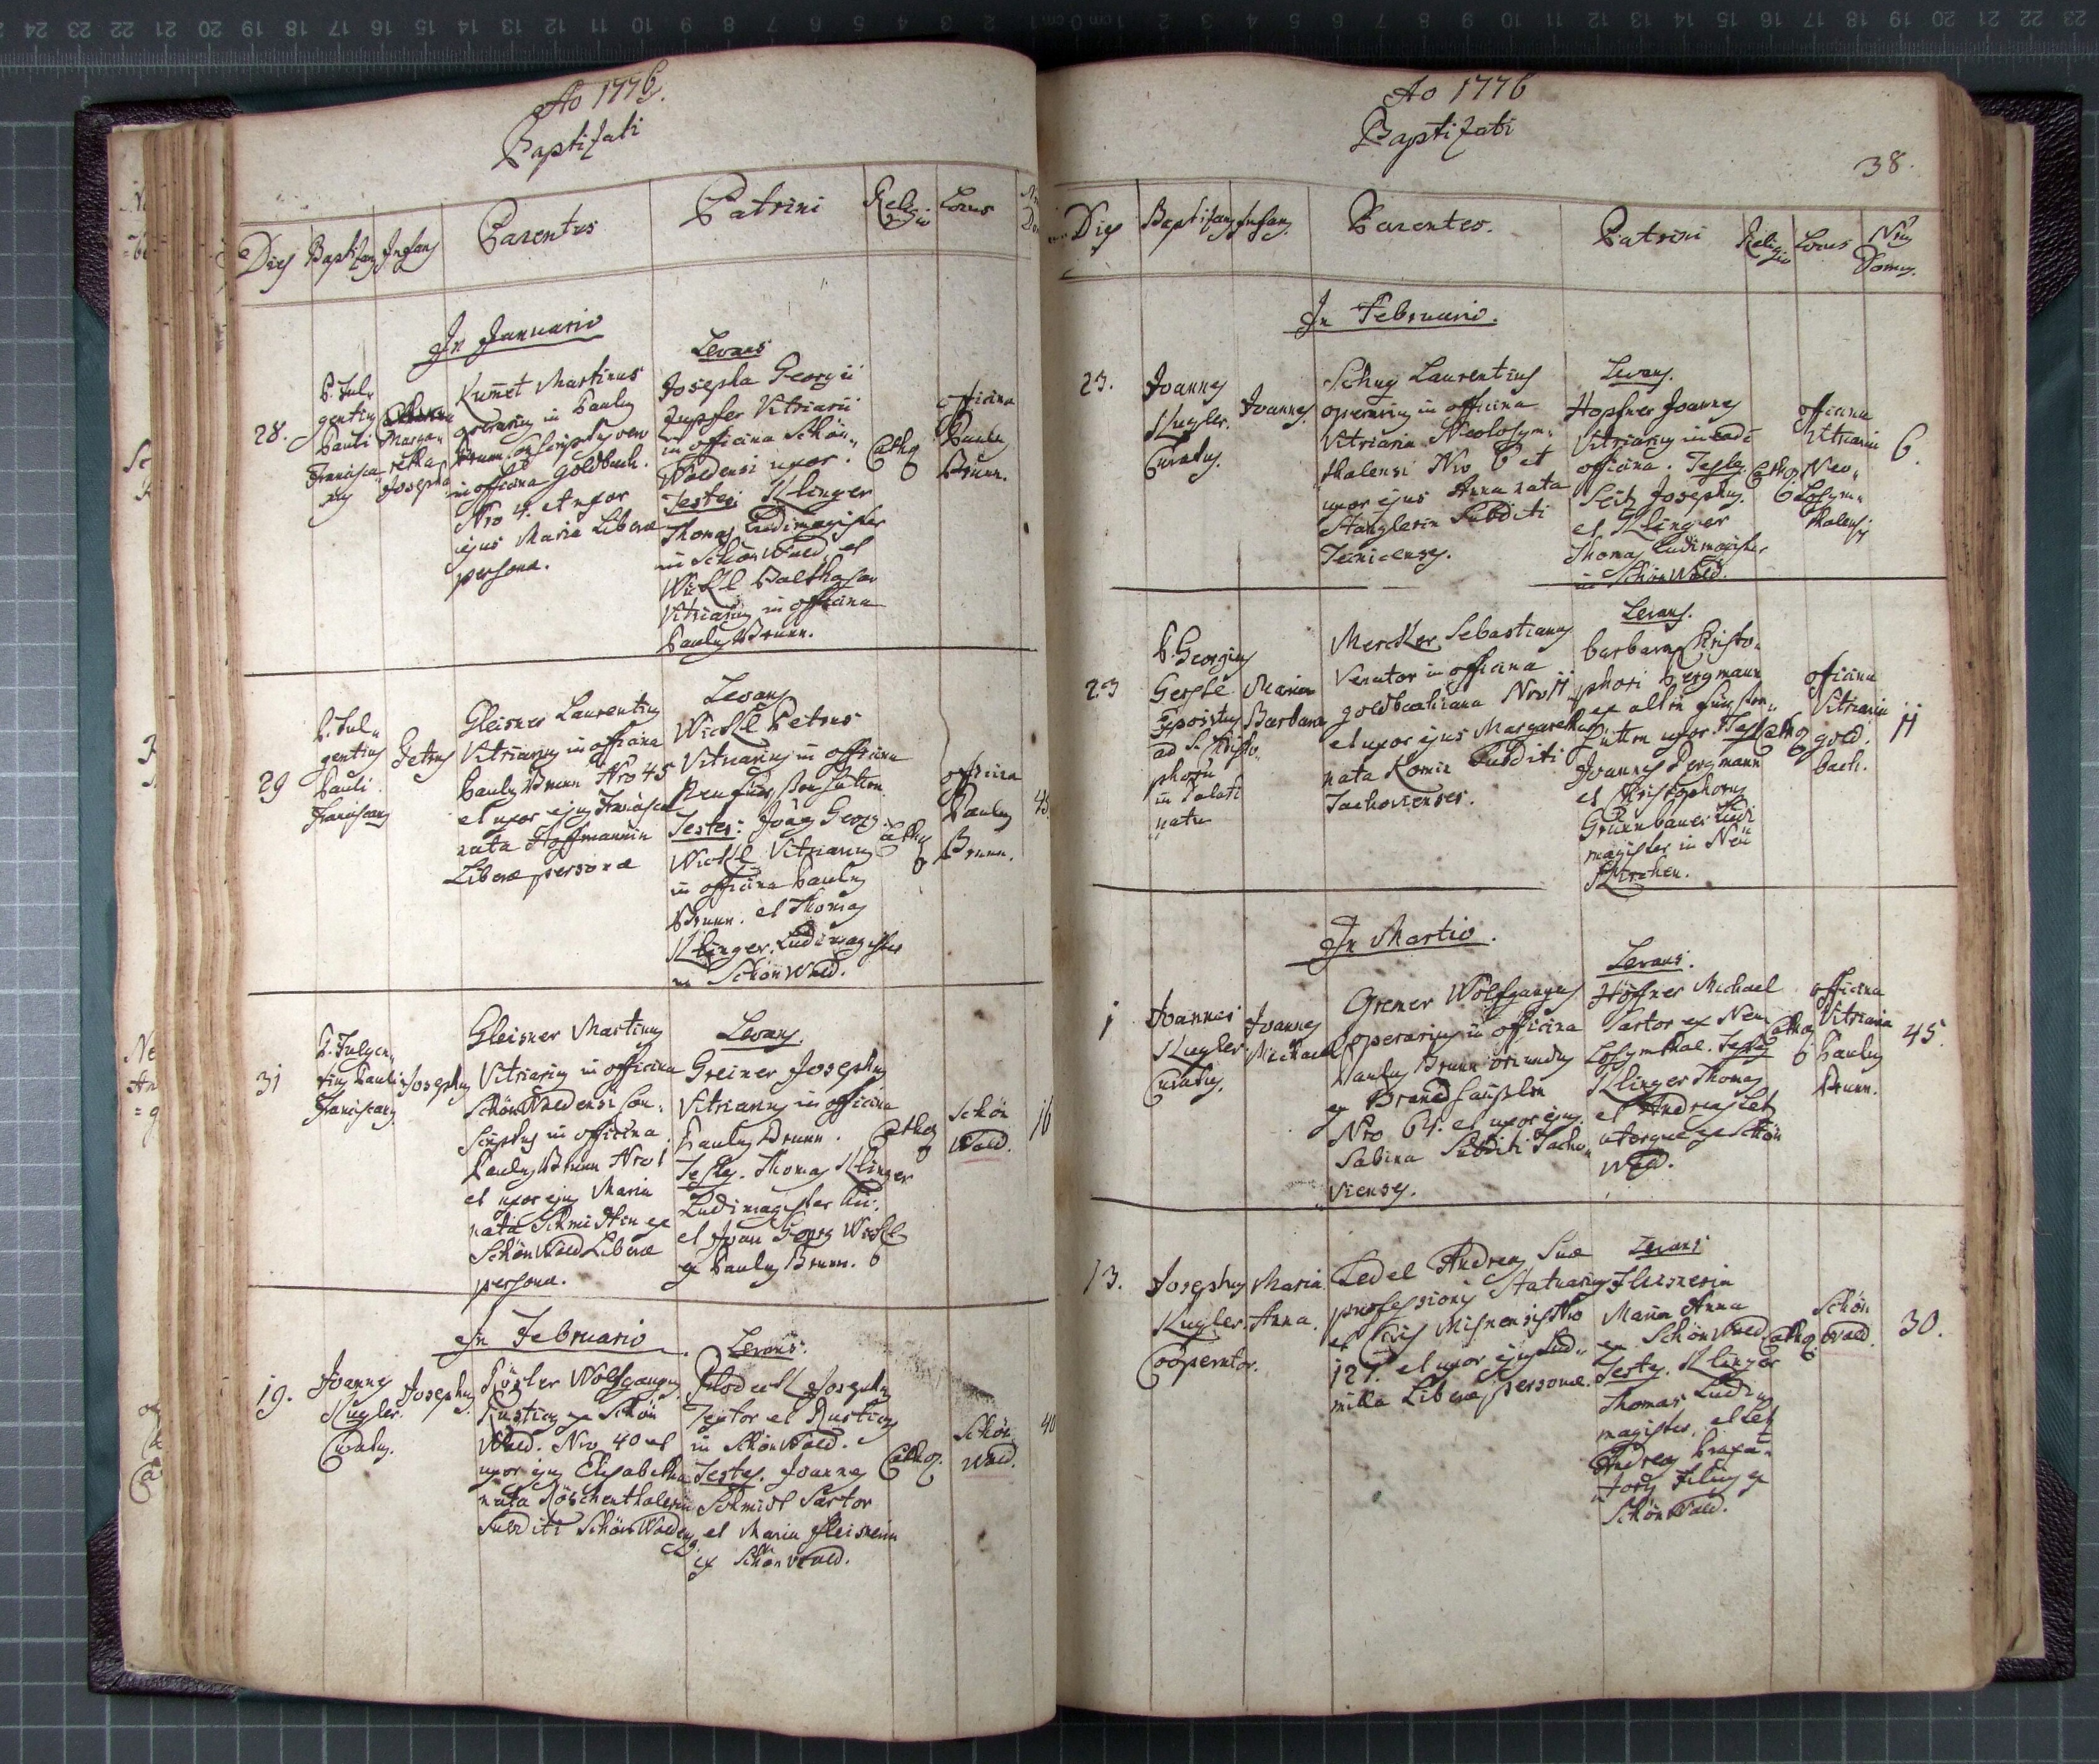 Ao 1776.
Baptizati
Dies Baptizans Infans Parentes Patrini Religio Locus
In Januario
28.
P. Ful„
gentius
Pauli
Francisca„
nus
Marga„
retha
Josepha
Kumet Martinus
operarius in Paulus
Brunn conscriptus vero
in officina Goldbach.
Nro 4. et uxor
ejus Maria Liberæ
personæ.
Levans
Josepha Georgii
Zupfer Vitriarii
in officina Schön„
Waldensi uxor.
Testes: Klinger
Thomas Ludimagister
in SchönWald, et
Wickl Balthasar
Vitriarius in officina
Paulus Brunn.
Cathol
officina
Paulus
Brunn.
29
P. Ful„
gentius
Pauli
Franciscanus
Petrus
Gleisner Laurentius
Vitriarius in officina
Paulus Brunn Nro 45
et uxor ejus Francisca
nata Hoffmannin
Liberæ personæ
Levans
Wickl Petrus
Vitriarius in officina
Neu Fürstenhütten
Testes: Joannes Georg.
Wickl Vitriarius
in officina Paulus
Brunn. et Thomas
Klinger Ludimagister
in SchönWald.
Cathol
officina
Paulus
Brunn.
45
31
P. Fulgen„
tius Pauli
Franciscanus
Josephus
Gleisner Martinus
Vitriarius in officina
SchönWaldensi con„
scriptus in officina
Paulus Brunn Nro 1
et uxor ejus Maria
nata Schmidtin ex
SchönWald Liberæ
personæ.
Levans.
Greiner Josephus
Vitriarius in officina
Paulus Brunn.
Testes. Thomas Klinger
Ludimagister hic.
et Joan Georg Wickl
ex Paulus Brunn.
Cathol
Schön
Wald.
16
In Februario
19.
Joannes
Kugler.
Curatus.
Josephus
Rösler Wolfgangus
Rusticus ex Schön
Wald. Nro 40 et
uxor ejus Elisabetha
nata Röschenthalerin
Subditi SchönWalden„
ses.
Levans.
Josephus
Textor et Rusticus
in SchönWald.
Testes. Joannes
Schmidt Sartor
et Maria Fleisnerin
ex SchönWald.
Cathol.
Schön
Wald.
40
Ao 1776
Baptizati
38.
Dies Baptizans Infans Parentes. Patrini Religio Locus Nrus Domus.
In Februario.
23.
Joannes
Kugler.
Curatus.
Joannes
Schug Laurentius
operarius in officina
Vitriaria Neolosym„
thalensi Nro 6 et
uxor ejus Anna nata
Stanglerin Subditi
Teinicenses.
Levans.
Hopfner Joannes
Vitriarius in eadē
officina. Testes
Seitz Josephus.
et Klinger
Thomas Ludimagister
in SchönWald.
Cathol
officina
Vitriaria
Neo„
Losym„
thalensis
6.
23
P. Georgius
Expositus
ad S. Christo„
phorū
in Palati
„natu
Maria
Barbara
Mercker Sebastianus
Venator in officina
goldbachiana Nro 11
et uxor ejus Margaretha
nata Komin Subditi
Tachovienses.
Levans.
barbara Christo„
phori Bergmann
ex alten Fürsten„
hütten uxor. Testes
Joannes Bergmann
et Christophorus
Grünnbauer Ludi
magister in Neü
Kirchen.
Cathol
officina
Vitriaria
gold„
bach.
11
In Martio.
1
Joannes
Kugler
Curatus.
Joannes
Michael
Grener Wolfgangus
operarius in officina
Paulus Brunn oriundus
ex Brand Häuslen
Nro 64. et uxor ejus
Sabina Subditi Tacho„
vienses.
Levans.
Höffner Michael
Sartor ex Neu
Losymthal. Testes
Klinger Thomas
et Andreas Let
uterque ex Schön
Wald.
Cathol
officina
Vitriaria
Paulus
Brunn.
45.
13.
Josephus
Kugler.
Cooperator.
Maria
Anna.
Ledel Andreas Suæ
professionis Statuarius
et Civis Misnensis Nro
127. et uxor ejus Lud„
milla Liberæ personæ.
Levans
Fleisnerin
Maria Anna
ex SchönWald
Testes. Klinger
Thomas Ludi„
magister, et Let
Andreas braxa„
toris Filius ex
SchönWald.
Cathol.
Schön
Wald.
30.